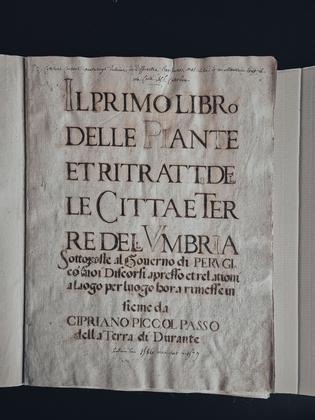 IL PRIMO LIBRO
DELLE PIANTE
ET RITRATTI DE
LE CITTA E TER
RE DELL VMBRIA
Sottoposte al Governo di PERVGI.
co' suoi Discorsi apresso et relationi
a luogo per luogo hora rimesse in
sieme da
CIPRIANO PICCOL PASSO
della Terra di Durante